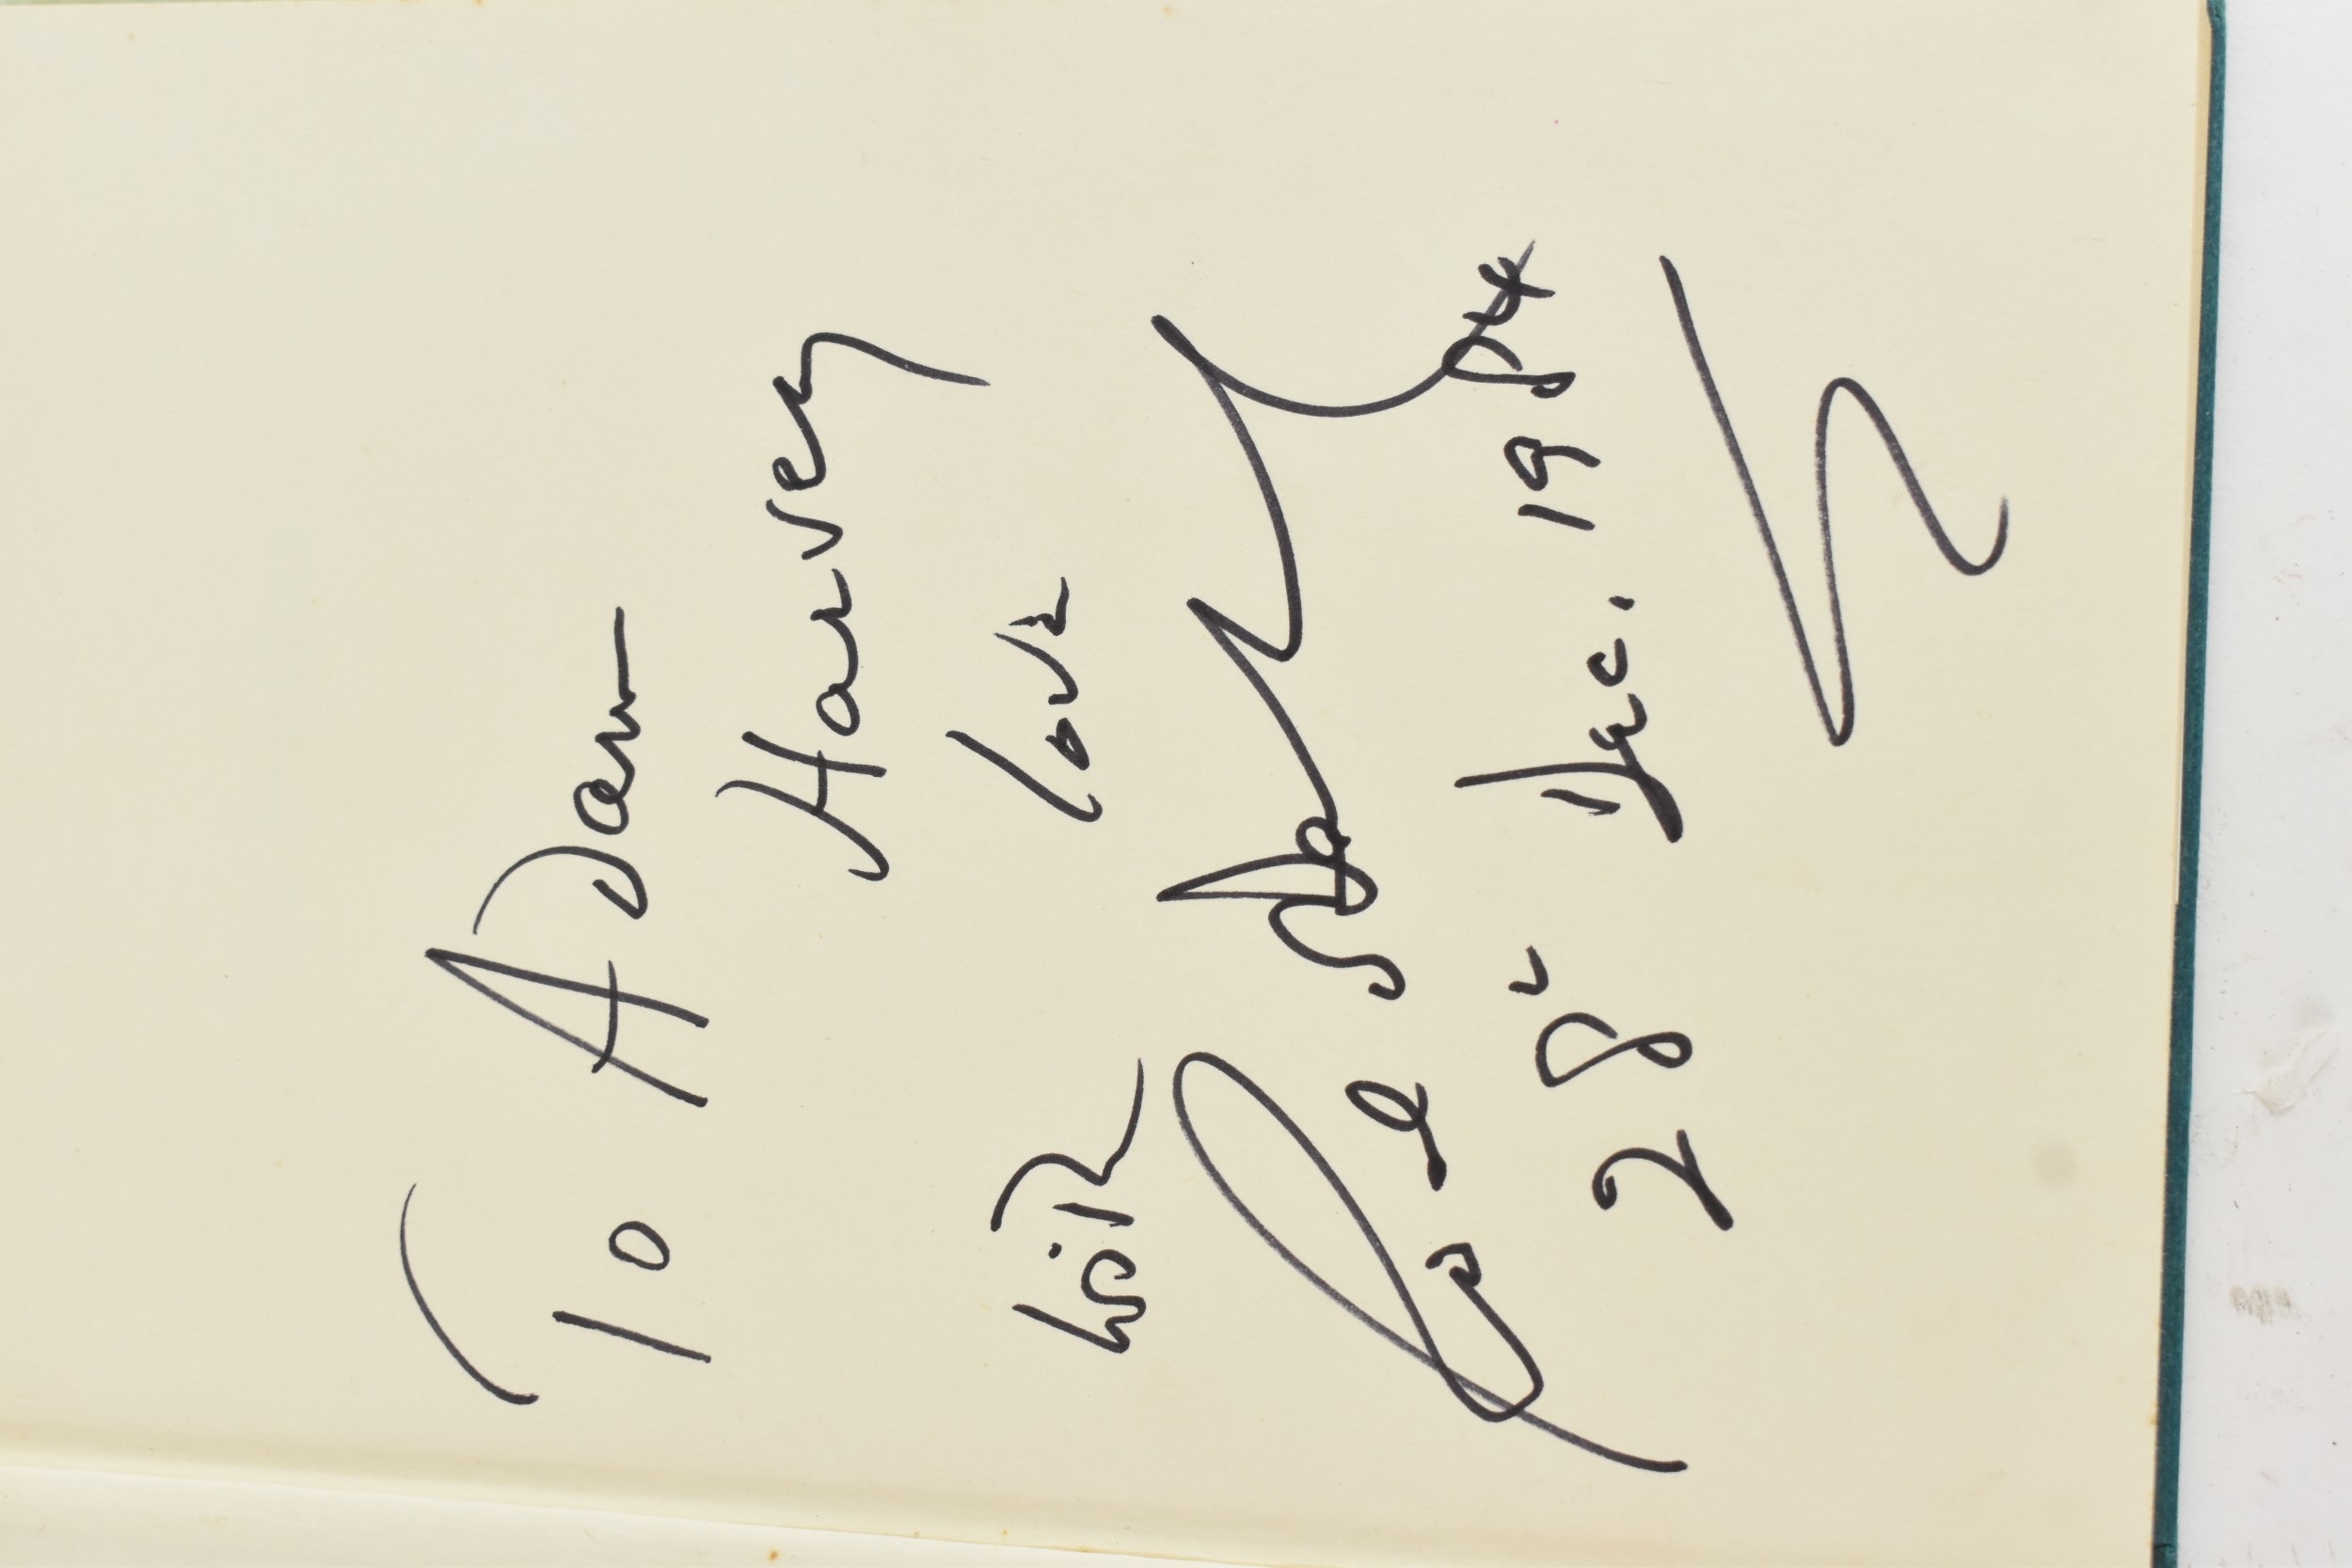 To ADam
Harvey
with love
28 Dec. 1984